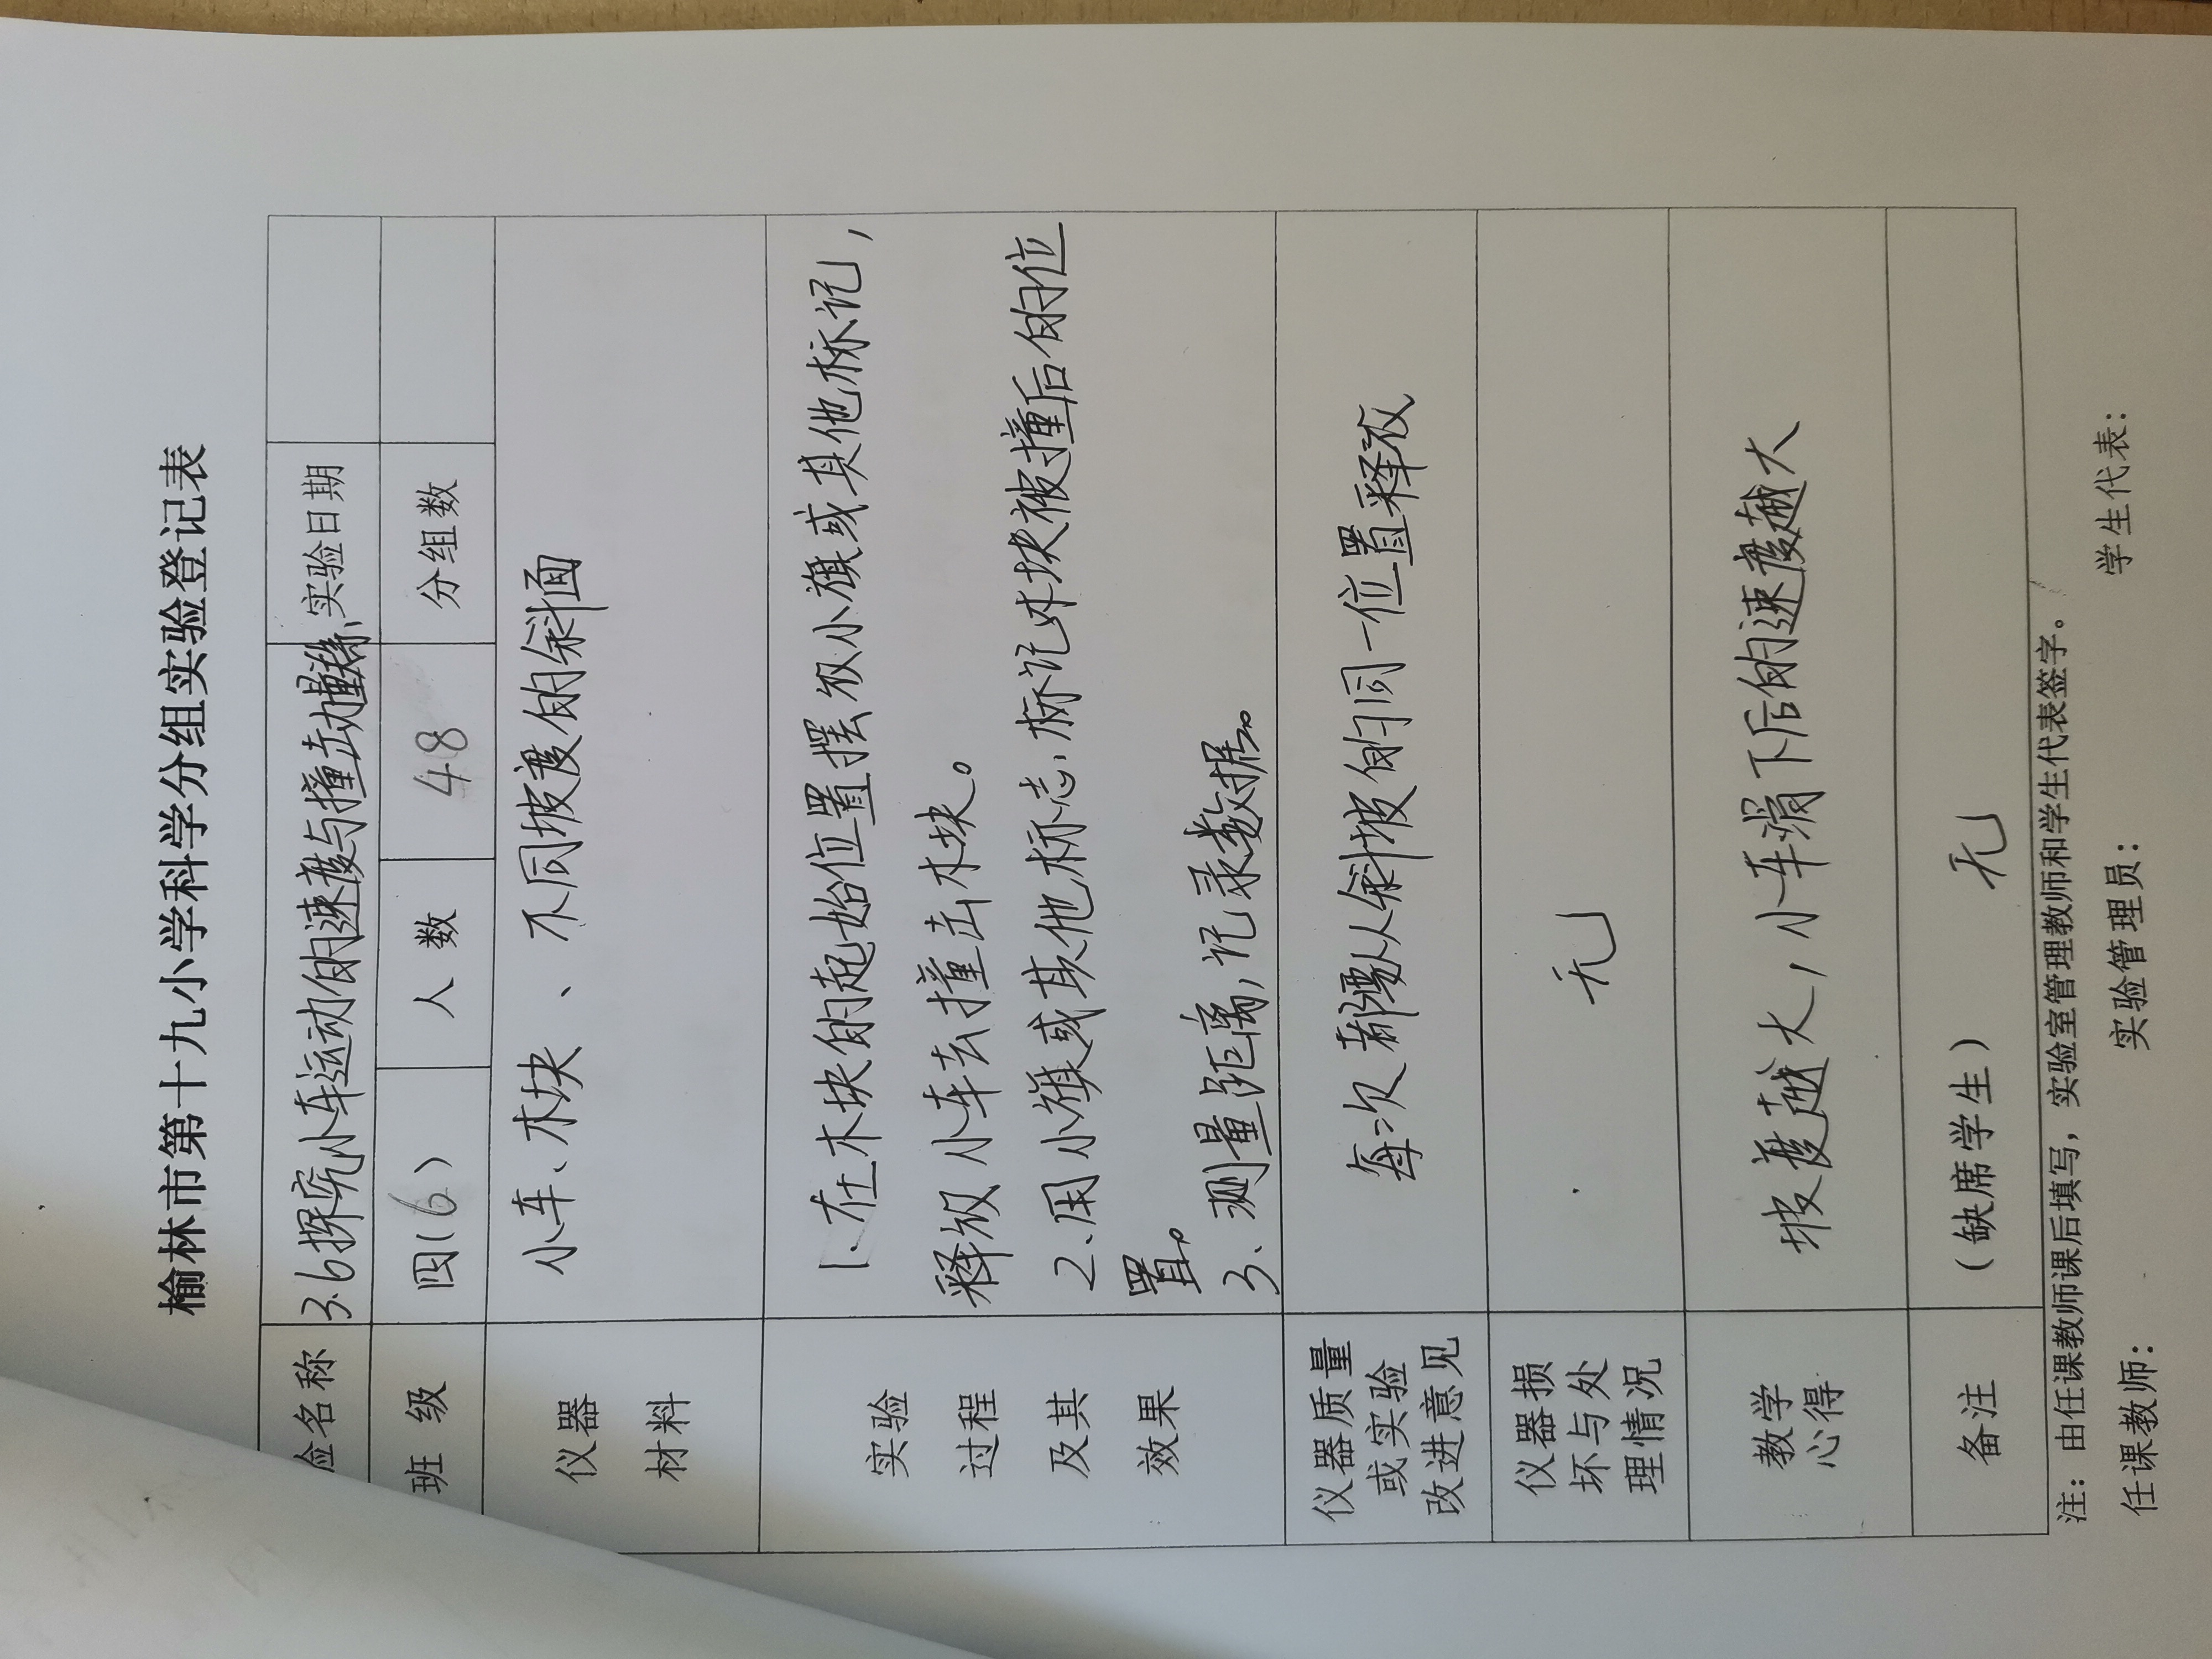 榆林市第十九小学科学分组实验登记表
验名称 3.6探究小车运动的速度与撞击动 实验日期
班 级 四(6) 人 数 48 分组数
仪器
材料
小车、木块、不同坡度的斜面
实验
过程
及其
效果
1.在木块的起始位置摆放小旗或其他标记,
释放小车去撞击木块。
2、用小旗或其他标志,标记木块被撞后的位
置。
3、测量距离,记录数据。
仪器质量
或实验
改进意见
每次都要从斜坡的同一位置释放
仪器损
坏与处
理情况
无
教学
心得
坡度越大,小车滑下后的速度越大
备注
(缺席学生) 无
注:由任课教师课后填写,实验室管理教师和学生代表签字。
任课教师: 实验管理员: 学生代表: